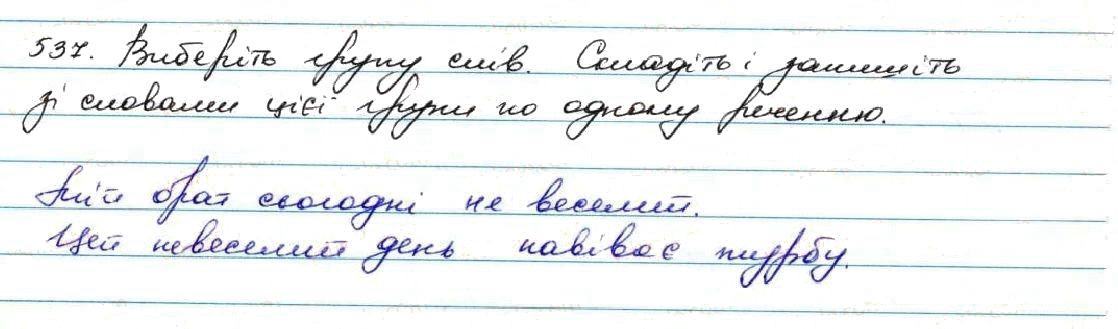 537. Виберіть групу слів. Складіть і запишіть
зі словами цієї групи по одному реченню.
Мій брат сьогодні не веселий.
Цей невеселий день навіває журбу.